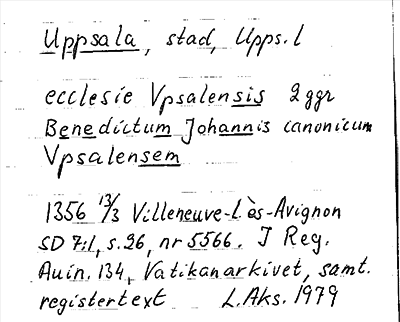 Uppsala, stad, Upps. l
ecclesie Vpsalensis 2 ggr
Benedictum Johannis canonicum
Vpsalensem
1356 13/3 Villeneuve-lès-Avignon
SD 7:1, s. 26, nr 5566. I Reg.
Auin. 134, Vatikanarkivet, samt.
registertext L. Aks. 1979